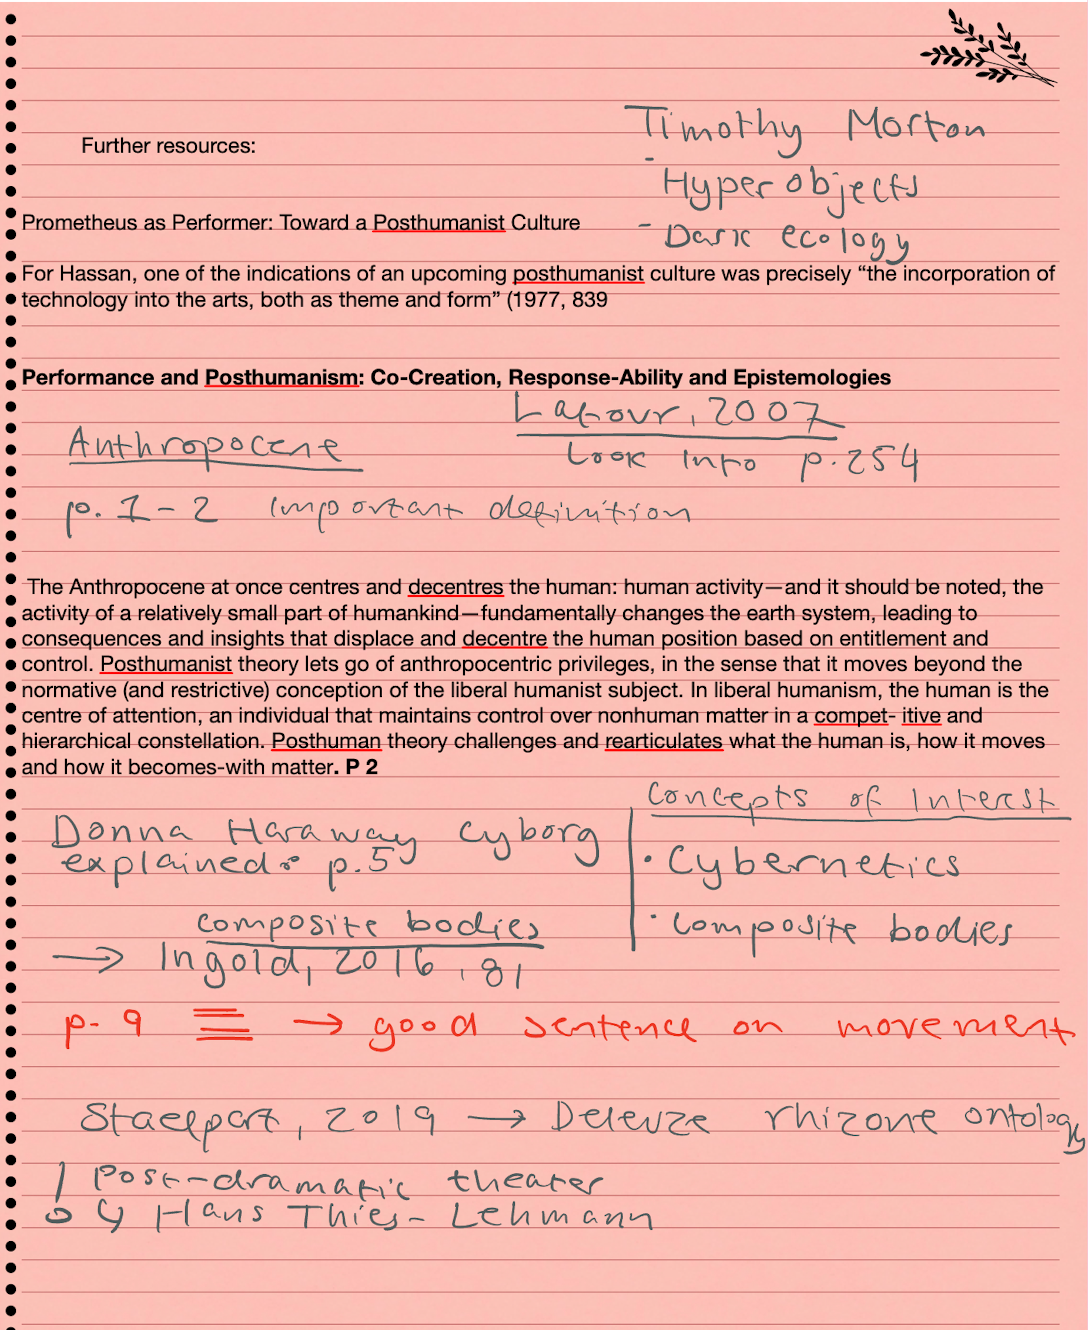 Timothy Morton
Further resources:
- Hyper objects
Prometheus as Performer: Toward a Posthumanist Culture
- Dark ecology
For Hassan, one of the indications of an upcoming posthumanist culture was precisely “the incorporation of
technology into the arts, both as theme and form” (1977, 839
Performance and Posthumanism: Co-Creation, Response-Ability and Epistemologies
Latour, 2007
Anthropocene
Look into p.254
p. 1-2 important definition
The Anthropocene at once centres and decentres the human: human activity—and it should be noted, the
activity of a relatively small part of humankind—fundamentally changes the earth system, leading to
consequences and insights that displace and decentre the human position based on entitlement and
control. Posthumanist theory lets go of anthropocentric privileges, in the sense that it moves beyond the
normative (and restrictive) conception of the liberal humanist subject. In liberal humanism, the human is the
centre of attention, an individual that maintains control over nonhuman matter in a compet- itive and
hierarchical constellation. Posthuman theory challenges and rearticulates what the human is, how it moves
and how it becomes-with matter. P 2
Donna Haraway Cyborg
explained p.5
composite bodies
→ Ingold, 2016, 81
Concepts of Interest
• Cybernetics
• Composite bodies
p. 9 → good sentence on movement
Staelpart, 2019 → Deleuze rhizone ontology
! Post-dramatic theater
↳ Hans Thies-Lehmann